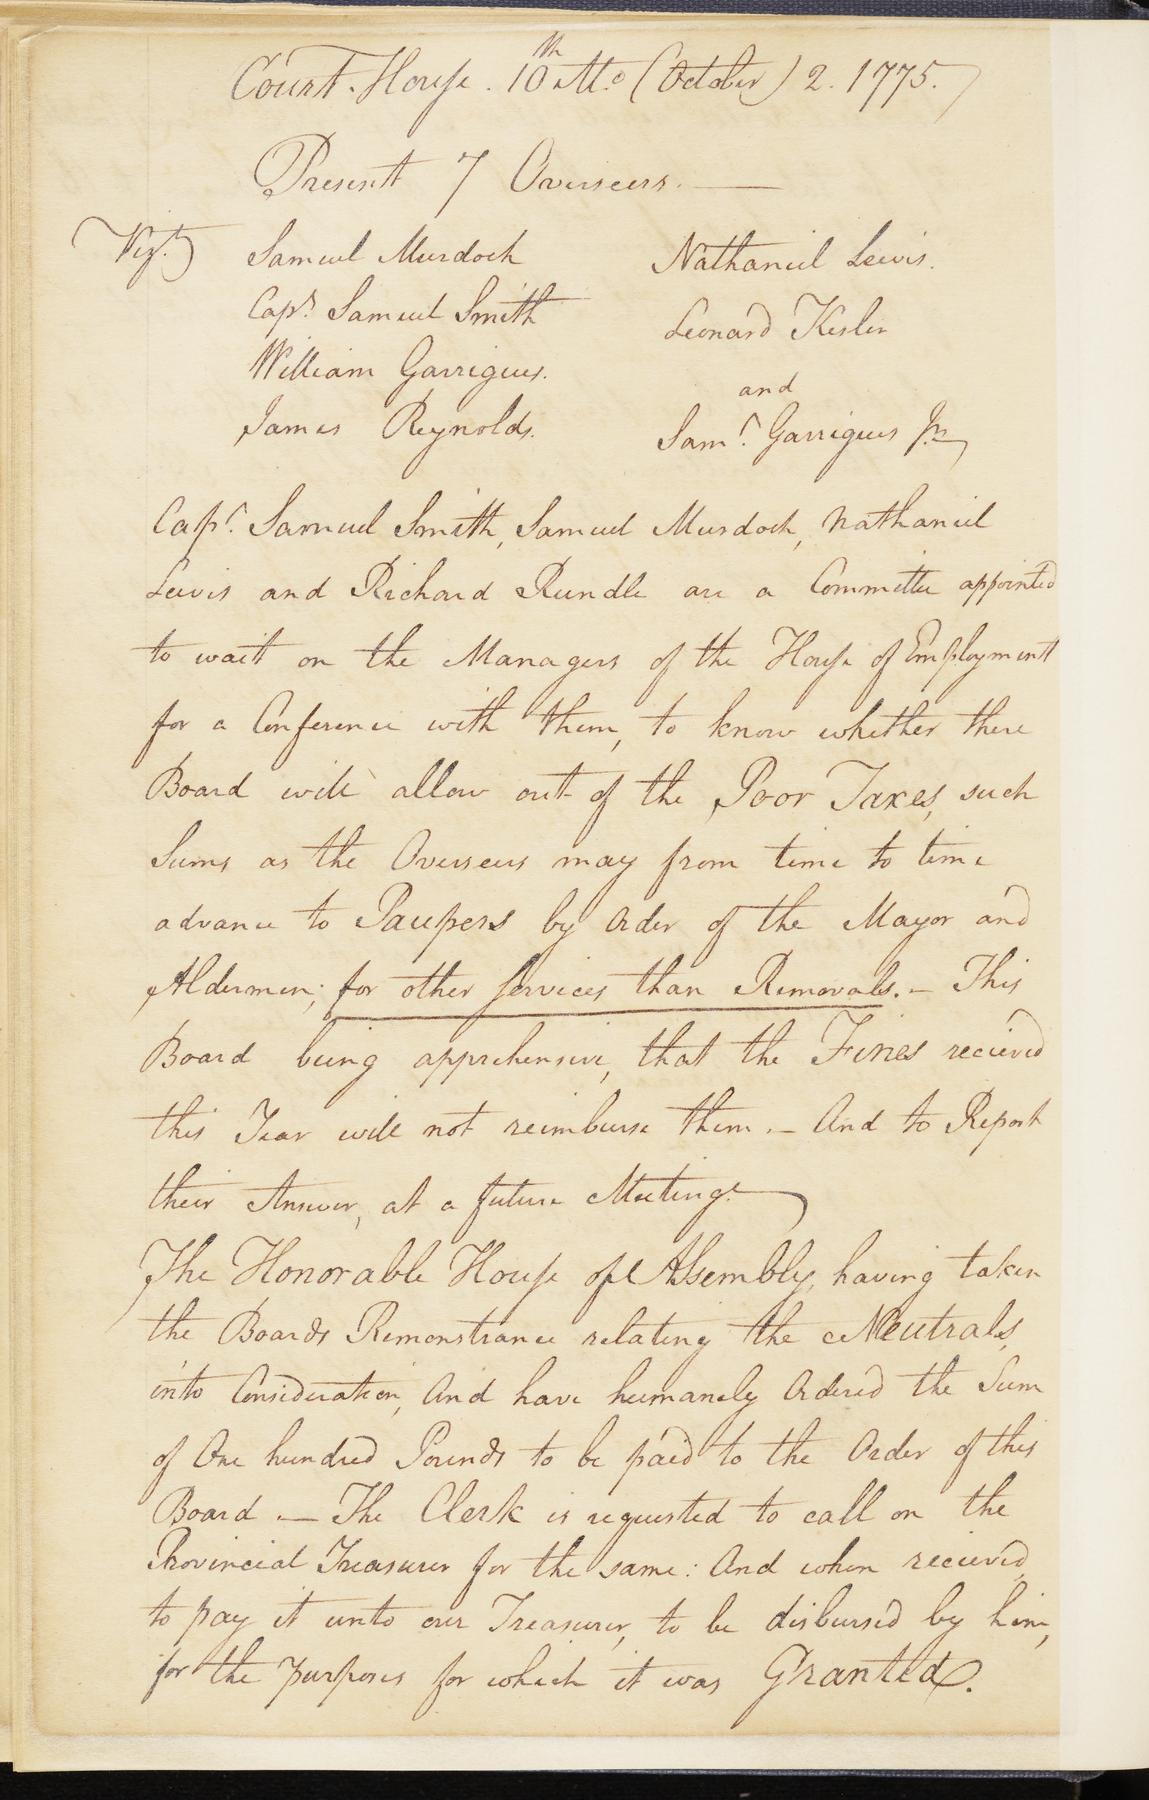 Court House. 10th Mo. (October) 2. 1775.
Present 7 Overseers. —
Vizt.
Samuel Murdoch
Nathaniel Lewis.
Capt. Samuel Smith
Leonard Kesler
William Garrigues.
and
James Reynolds.
Saml. Garrigues Jr.
Capt. Samuel Smith, Samuel Murdoch, Nathaniel
Lewis and Richard Rundle are a Committee appointed
to wait on the Managers of the House of Employment
for a Conference with them, to know whether there
Board will allow out of the Poor Taxes, such
Sums as the Overseers may from time to time
advance to Paupers by Order of the Mayor and
Aldermen; for other Services than Removals. — This
Board being apprehensive, that the Fines recieved
this Year will not reimburse them. — And to Report
their Answer, at a future Meeting.
The Honorable House of Assembly, having taken
the Boards Remonstrance relating the Neutrals,
into Consideration, And have humanely Ordered the Sum
of One hundred Pounds to be paid to the Order of this
Board. — The Clerk is requested to call on the
Provincial Treasurer for the same: And when recieved,
to pay it unto our Treasurer, to be disbursed by him,
for the purposes for which it was Granted.